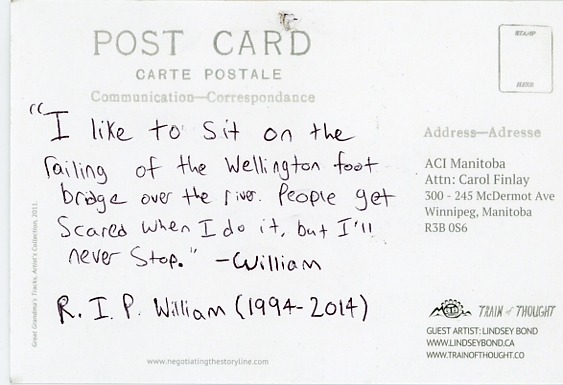 POST CARD
CARTE POSTALE
Communication—Correspondance
"I like to sit on the
railing of the Wellington foot
bridge over the river. People get
Scared when I do it, but I'll
never Stop." -William
R.I.P. William (1994-2014)
www.negotiatingthestoryline.com
Great Grandma's Tracks, Artist's Collection, 2011.
Address—Adresse
ACI Manitoba
Attn: Carol Finlay
300 - 245 McDermot Ave
Winnipeg, Manitoba
R3B 0S6
TRAIN of THOUGHT
GUEST ARTIST: LINDSEY BOND
WWW.LINDSEYBOND.CA
WWW.TRAINOFTHOUGHT.CO